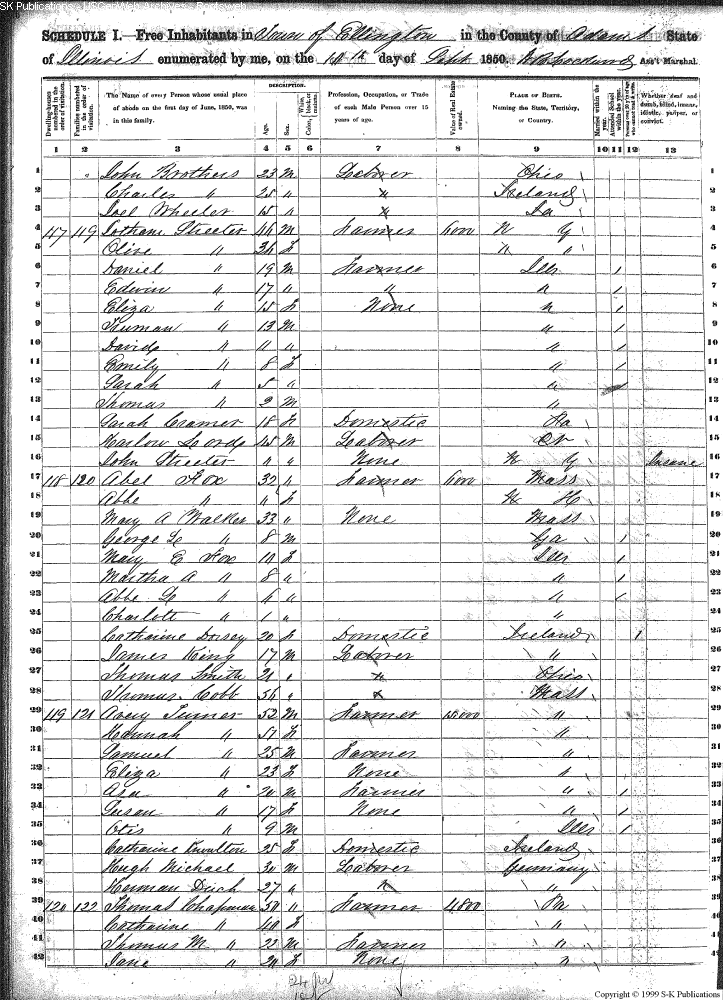 SCHEDULE I.—Free Inhabitants in Town of Ellington in the County of Adams State
of Illinois enumerated by me, on the day of Sept 1850. Ass't Marshal.
Dwelling-houses numbered in the order of visitation.
Families numbered in the order of visitation.
The Name of every Person whose usual place of abode on the first day of June, 1850, was in this family.
DESCRIPTION.
Age.
Sex.
Color, White, black, or mulatto.
Profession, Occupation, or Trade of each Male Person over 15 years of age.
Value of Real Estate owned.
PLACE OF BIRTH. Naming the State, Territory, or Country.
Married within the year.
Attended School within the year.
Persons over 20 y'rs of age who cannot read & write.
Whether deaf and dumb, blind, insane, idiotic, pauper, or convict.
1 2 3 4 5 6 7 8 9 10 11 12 13
1 " John Brothers 23 M Laborer Ohio 1
2 Charles " 25 " " Ireland 2
3 Joel Wheeler 15 " " 3
4 117 119 Streeter 44 M Farmer 6000 N Y 4
5 Olive " F " " 5
6 Daniel " 19 M Farmer Ills / 6
7 Edwin " 17 " " " / 7
8 Eliza " 15 F None " / 8
9 Truman " 13 M " / 9
10 David " 11 " " / 10
11 Emily " 8 F " / 11
12 Sarah " 5 " " 12
13 Thomas " 2 M " 13
14 Sarah Cramer 18 F Domestic Pa 14
15 45 M Laborer 15
16 John Streeter " " None N Y Insane 16
17 118 120 Abel Fox 32 " Farmer 6000 Mass 17
18 Abbe " " F N H 18
19 Mary A Walker 33 " None Mass 19
20 George " 8 M Ga / 20
21 Mary E Fox 10 F Ills / 21
22 Martha A " 8 " " / 22
23 Abbe " 6 " " / 23
24 Charlott " 1 " " 24
25 Catharine Dorsey 20 F Domestic Ireland 1 25
26 James King 17 M Laborer " 26
27 Thomas Smith 21 " " Ohio 27
28 Thomas Cobb 56 " " Mass 28
29 119 121 Avery Turner 52 M Farmer 15000 " 29
30 Hannah " 51 F " 30
31 Samuel " 25 M Farmer " 31
32 Eliza " 23 F None " 32
33 Asa " 20 M Farmer " / 33
34 Susan " 17 F None " / 34
35 Otis " 9 M Ills / 35
36 Catharine 25 F Domestic Ireland 36
37 Hugh Michael 30 M Laborer Germany 37
38 Herman 27 " " " 38
39 120 122 Thomas Chapman 50 " Farmer 4800 Pa 39
40 Catharine " 40 F " 40
41 Thomas M " 22 M Farmer " 41
42 Jane " 20 F None " 42
SK Publications
Copyright © 1999 S-K Publications